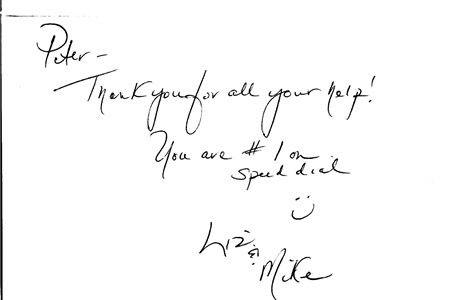 Peter –
Thank you for all your help!
You are # 1 on
speed dial
Liz &
Mike